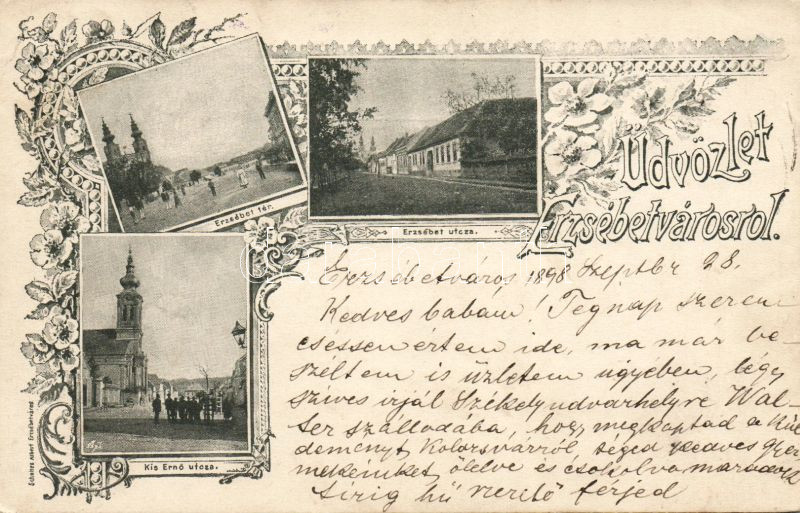 Üdvözlet
Erzsébetvárosról.
Erzsébet tér.
Erzsébet utcza.
Kis Ernő utcza.
Erzsébetváros 1898 Szeptbr 28.
Kedves babám! Tegnap szeren
csésen értem ide, ma már be-
széltem is üzletem ügyében, légy
szives irjál Székelyudvarhelyre Wal-
ter szállodába, hogy megkaptad a kül
deményt Kolozsvárról, téged kedves gyer
mekeinket, ölelve és csókolva maradok
sirig hű szerető férjed